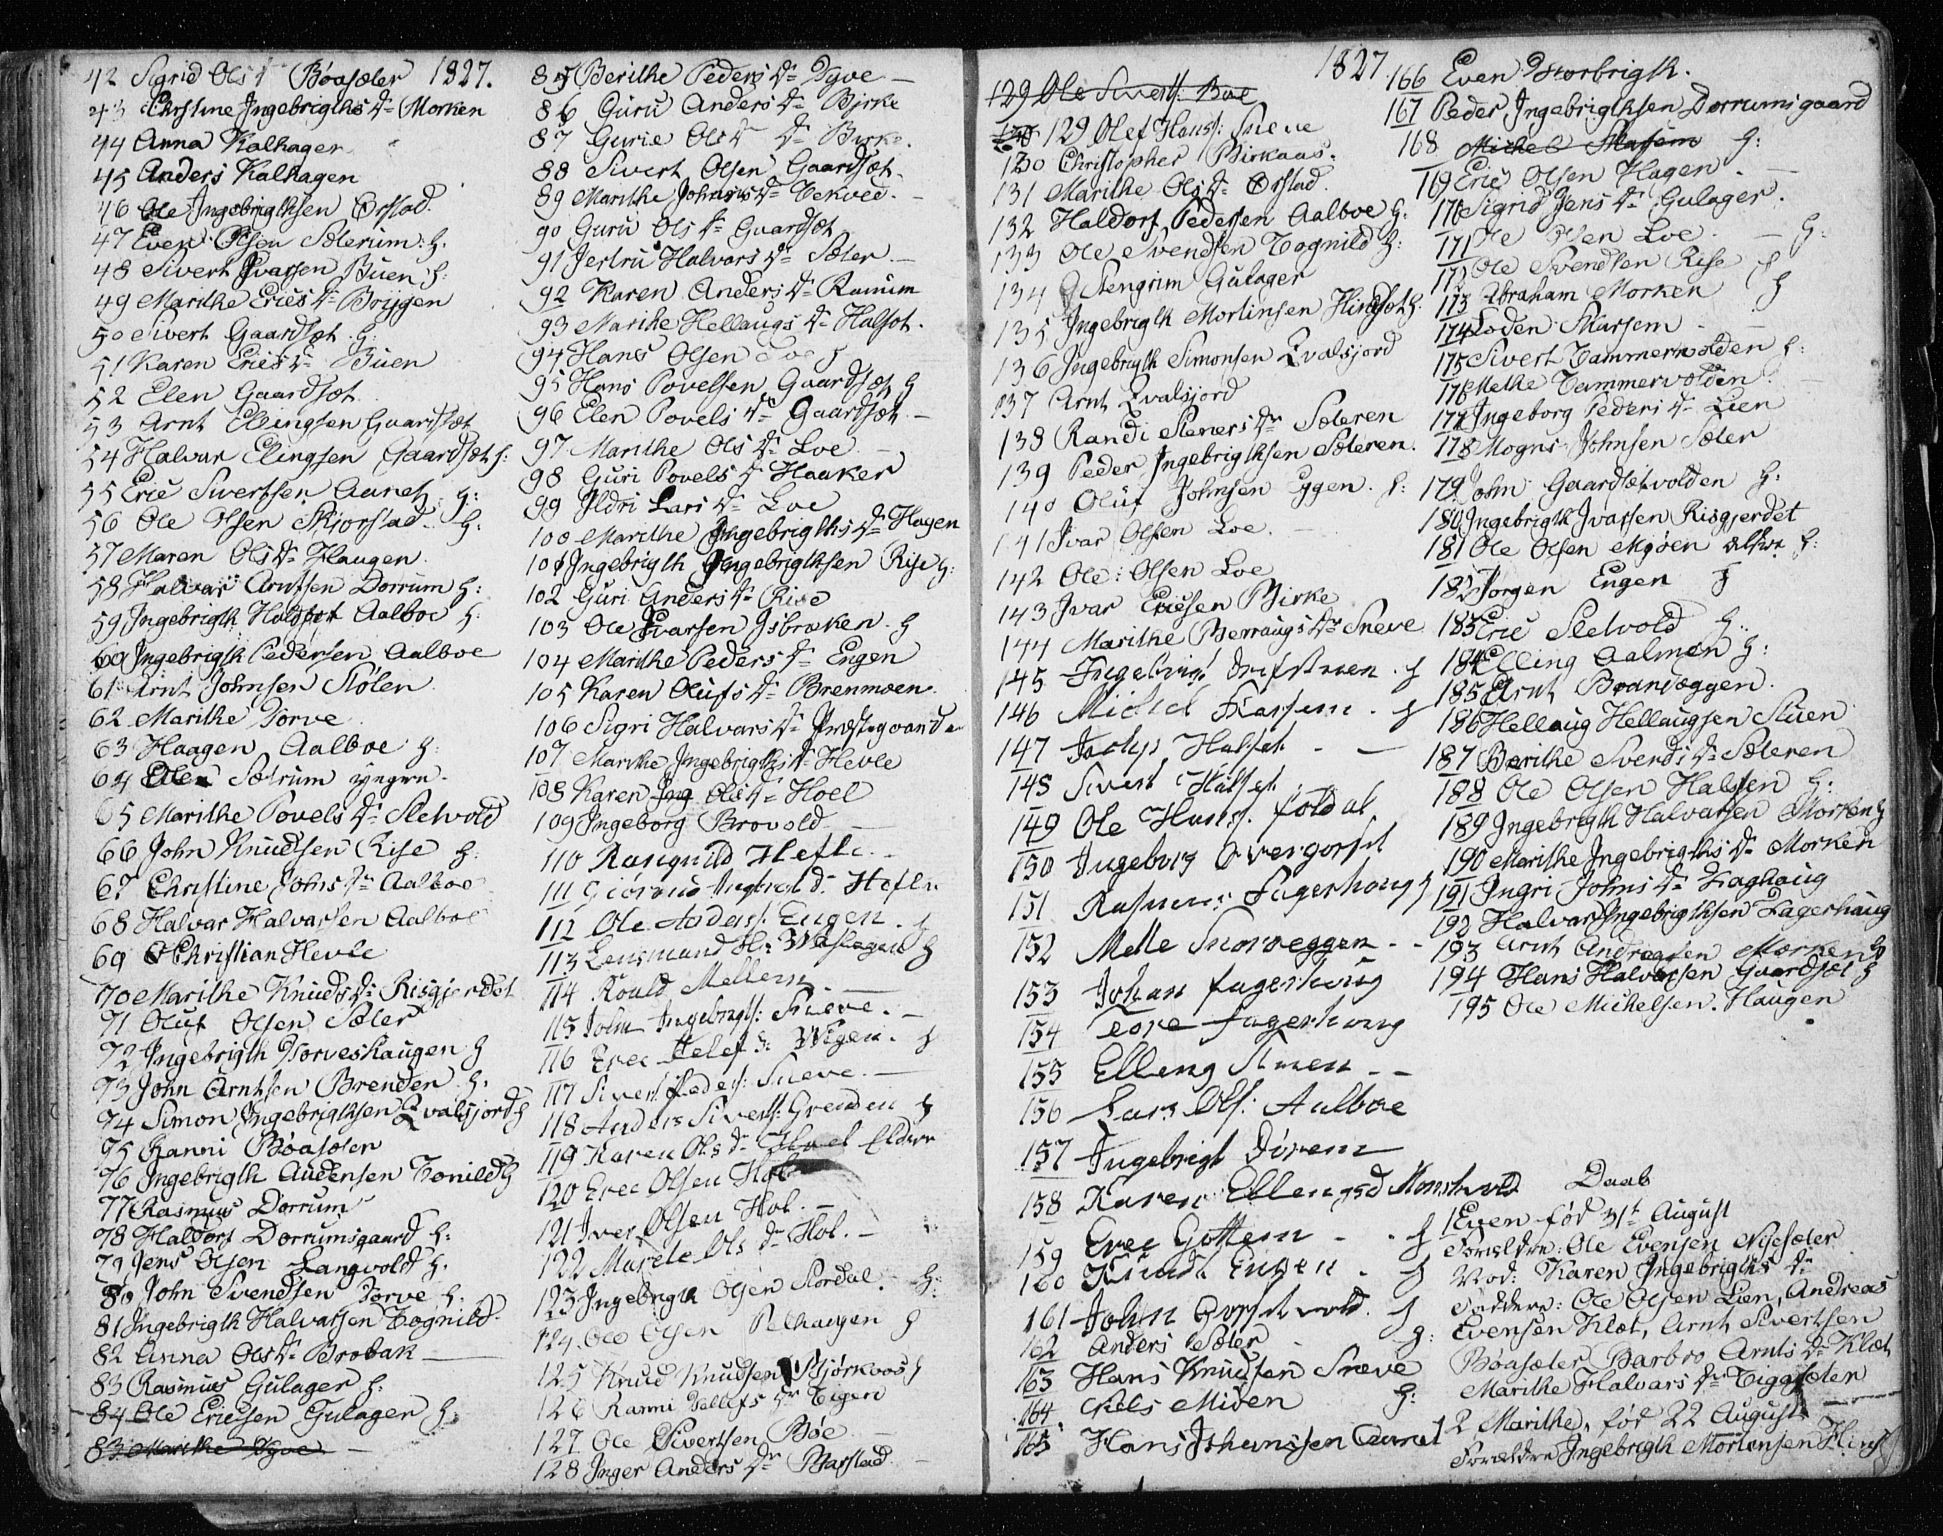 42 Sigrid Ols Dr Bøasæter 1827.
43 Christine Ingebrigths Dr Morken
44 Anna Kalhager
45 Anders Kalhagen
46 Ole Ingebrigthsen Ørstad.
47 Even Olsen Sæterum. h.
48 Sivert Ivarsen Buen h.
49 Marithe Erics Dr Boggen
50 Sivert Gaardsæt. h.
51 Karen Erics Dr Buen
52 Elen Gaardsæt
53 Arnt Ellingsen Gaardsæt
54 Halvar Elingsen Gaardsæt h.
55 Eric Sivertsen Aunet h:
56 Ole Olsen Skjørstad. h.
57 Maren Ols Dr Haugen
58 Halvar Arntsen Dorrum h:
59 Ingebrigth Haldorf Aalboe h.
60 Ingebrigth Pedersen Aalboe
61 Arnt Johnsen Stølen
62 Marithe Torve
63 Haagen Aalboe h:
64 Ole Sætrum yngre.
65 Marithe Povels Dr Sletvold
66 John Knudsen Rise h:
67 Christine Johns Dr Aalboe
68 Halvar Halvarsen Aalboe
69 Christian Hevle
70 Marithe Knuds Dr Risgjerdet
71 Oluf Olsen Sæter
72 Ingebrigth Torveshaugen h
73 John Arntsen Brenden h.
74 Simon Ingebrigthsen Qvalsjord h
75 Ranni Bøasæter
76 Ingebrigth Audensen Tonild h
77 Rasmus Dorrum
78 Haldorf Dorrumsgaard h:
79 Jens Olsen Langvold h.
80 John Svendsen Torve h.
81 Ingebrigth Halvarsen Tognild
82 Anna Ols Dr Brobak
83 Rasmus Gulager h.
84 Ole Ericsen Gulagen h.
83 Marithe Ygve
85 Berithe Peders Dr Ygve
86 Guru Anders Dr Birke
87 Gurie Ols Dr Birke.
88 Sivert Olsen Gaardsæt
89 Marithe Johns Dr Vekved.
90 Guru Ols Dr Gaardsæt
91 Jertru Halvars Dr Sæter.
92 Karen Anders Dr Ranum
93 Marithe Hellaugs Dr Halset.
94 Hans Olsen Loe h
95 Hans Povelsen Gaardsæt h
96 Elen Povels Dr Gaardsæt
97 Marithe Ols Dr Loe
98 Guri Povels Dr Haaker
99 Ildri Lars Dr Loe
100 Marithe Ingebrigths Dr Hagen
101 Ingebrigth Ingebrigthsen Rise h:
102 Guri Anders Dr Rise
103 Ole Ivarsen Isbreken. h
104 Marithe Peders Dr Engen
105 Karen Olufs Dr Brenmoen.
106 Sigri Halvars Dr
107 Marithe Ingebrigths Dr Hevle
108 Karen Ing Ols Dr Hoel
109 Ingeborg Brovold
110 Rangnild Hefle.
111 Giørand Ingebrigt D: Hefle
112 Ole Anders: Engen. h
113 Lensmand H: h
114 Roald Mellem
115 John Ingebrigts: Sneve.
116 Eric Detlef S: Wigen. h
117 Sivert Peders: Sneve.
118 Anders Siverts: Grenden h
119 Karen Ols Dr Hoel Eldere
120 Eric Olsen Hol
121 Iver Olsen Hol.
122 Marete Ols Dr Hol.
123 Ingebrigth Olsen Stordal. h.
124. Ole Olsen h
125 Knud Knudsen Bjørkaas h
126 Ranni Detlefs Dr Vigen
127 Ole Sivertsen Bøe
128 Inger Anders Dr Barstad
1827
129 Ole Siverts: Boe
129 Olef Hans: Sneve
130 Christopher Birkaas.
131 Marithe Ols Dr Ørstad.
132 Haldorf Pedersen Aalboe h.
133 Ole Svendsen Tognild h:
134 Stengrim Gulager
135 Ingebrigth Mortinsen Hindset h.
136 Ingebrigth Simonsen Qvalsjord
137 Arnt Qvalsjord
138 Randi Steners Dr Sæteren
139 Peder Ingebrigthsen Sæteren.
140 Oluf Johnsen Eggen. h:
141 Ivar Olsen Loe.
142 Ole: Olsen Loe
143 Ivar Ericsen Birke
144 Marithe Berraugs Dr Sneve
145 Ingebrigt Driftstuen. h
146 Michel Skarsem. h
147 Halset
148 Sivert Halset
149 Ole Hans: foldal
150 Ingeborg
151 Rasmus Fagerhoug h
152 Mette Snoveggen
153 Johan fagerhoug
154 Tore fagerhoug
155 Elleng Stuen
156 Lars Ols: Aalboe
157 Ingebrigt Dørem
158 Karen Ellengsd
159 Erec Gottem h
160 Knud Engen h
161 John h
162 Anders Sæter h:
163 Hans Knudsen Sneve
164. Niels Miden h:
165 Hans Johansen Aunet
166 Even Storbrigth.
167 Peder Ingebrigthsen Dorrumsgaard
168 Michel Skarsem h:
169 Eric Olsen Hagen
170 Sigrid Jens Dr Gulager.
171 Ole Olsen Loe. h:
172 Ole Svendsen Rise h
173 Abraham Morken h
174 Loden Skarsem
175 Sivert Tammervolden h:
176 Methe Tammervolden
177 Ingeborg Peders Dr Lien
178 Mogns Johnsen Sæter
179 John Gaardsætvolden h:
180 Ingebrigth Ivarsen Risgjerdet
181 Ole Olsen Mgøen h:
182 Jørgen Engen h
183 Eric Sletvold h:
184 Elling Aalmen h:
185 Arnt Brandeggen.
186 Hellaug Hellaugsen Stuen
187 Berithe Sverds Dr Sæteren
188 Ole Olsen Halssen h:
189 Ingebrigth Halvarsen Morken h
190 Marithe Ingebrigths Dr Morken
191 Ingri Johns Dr
192 Halvar Ingebrigthsen Fagerhaug
193 Arnt Andreasen Morken h
194 Hans Halvarsen Gaardsæt h
195 Ole Michelsen. Haugen
Daab
1 Even fød 31t August
Forældre: Ole Evensen Nysæter
Mod: Karen Ingebrigths Dr
Faddere: Ole Olsen Lien, Andreas
Evensen Klæt, Arnt Sivertsen
Bøasæter Barbro Arnts Dr Klæt
Marithe Halvars Dr
2 Marithe, fød 22 August
Forældre Ingebrigth Mortensen